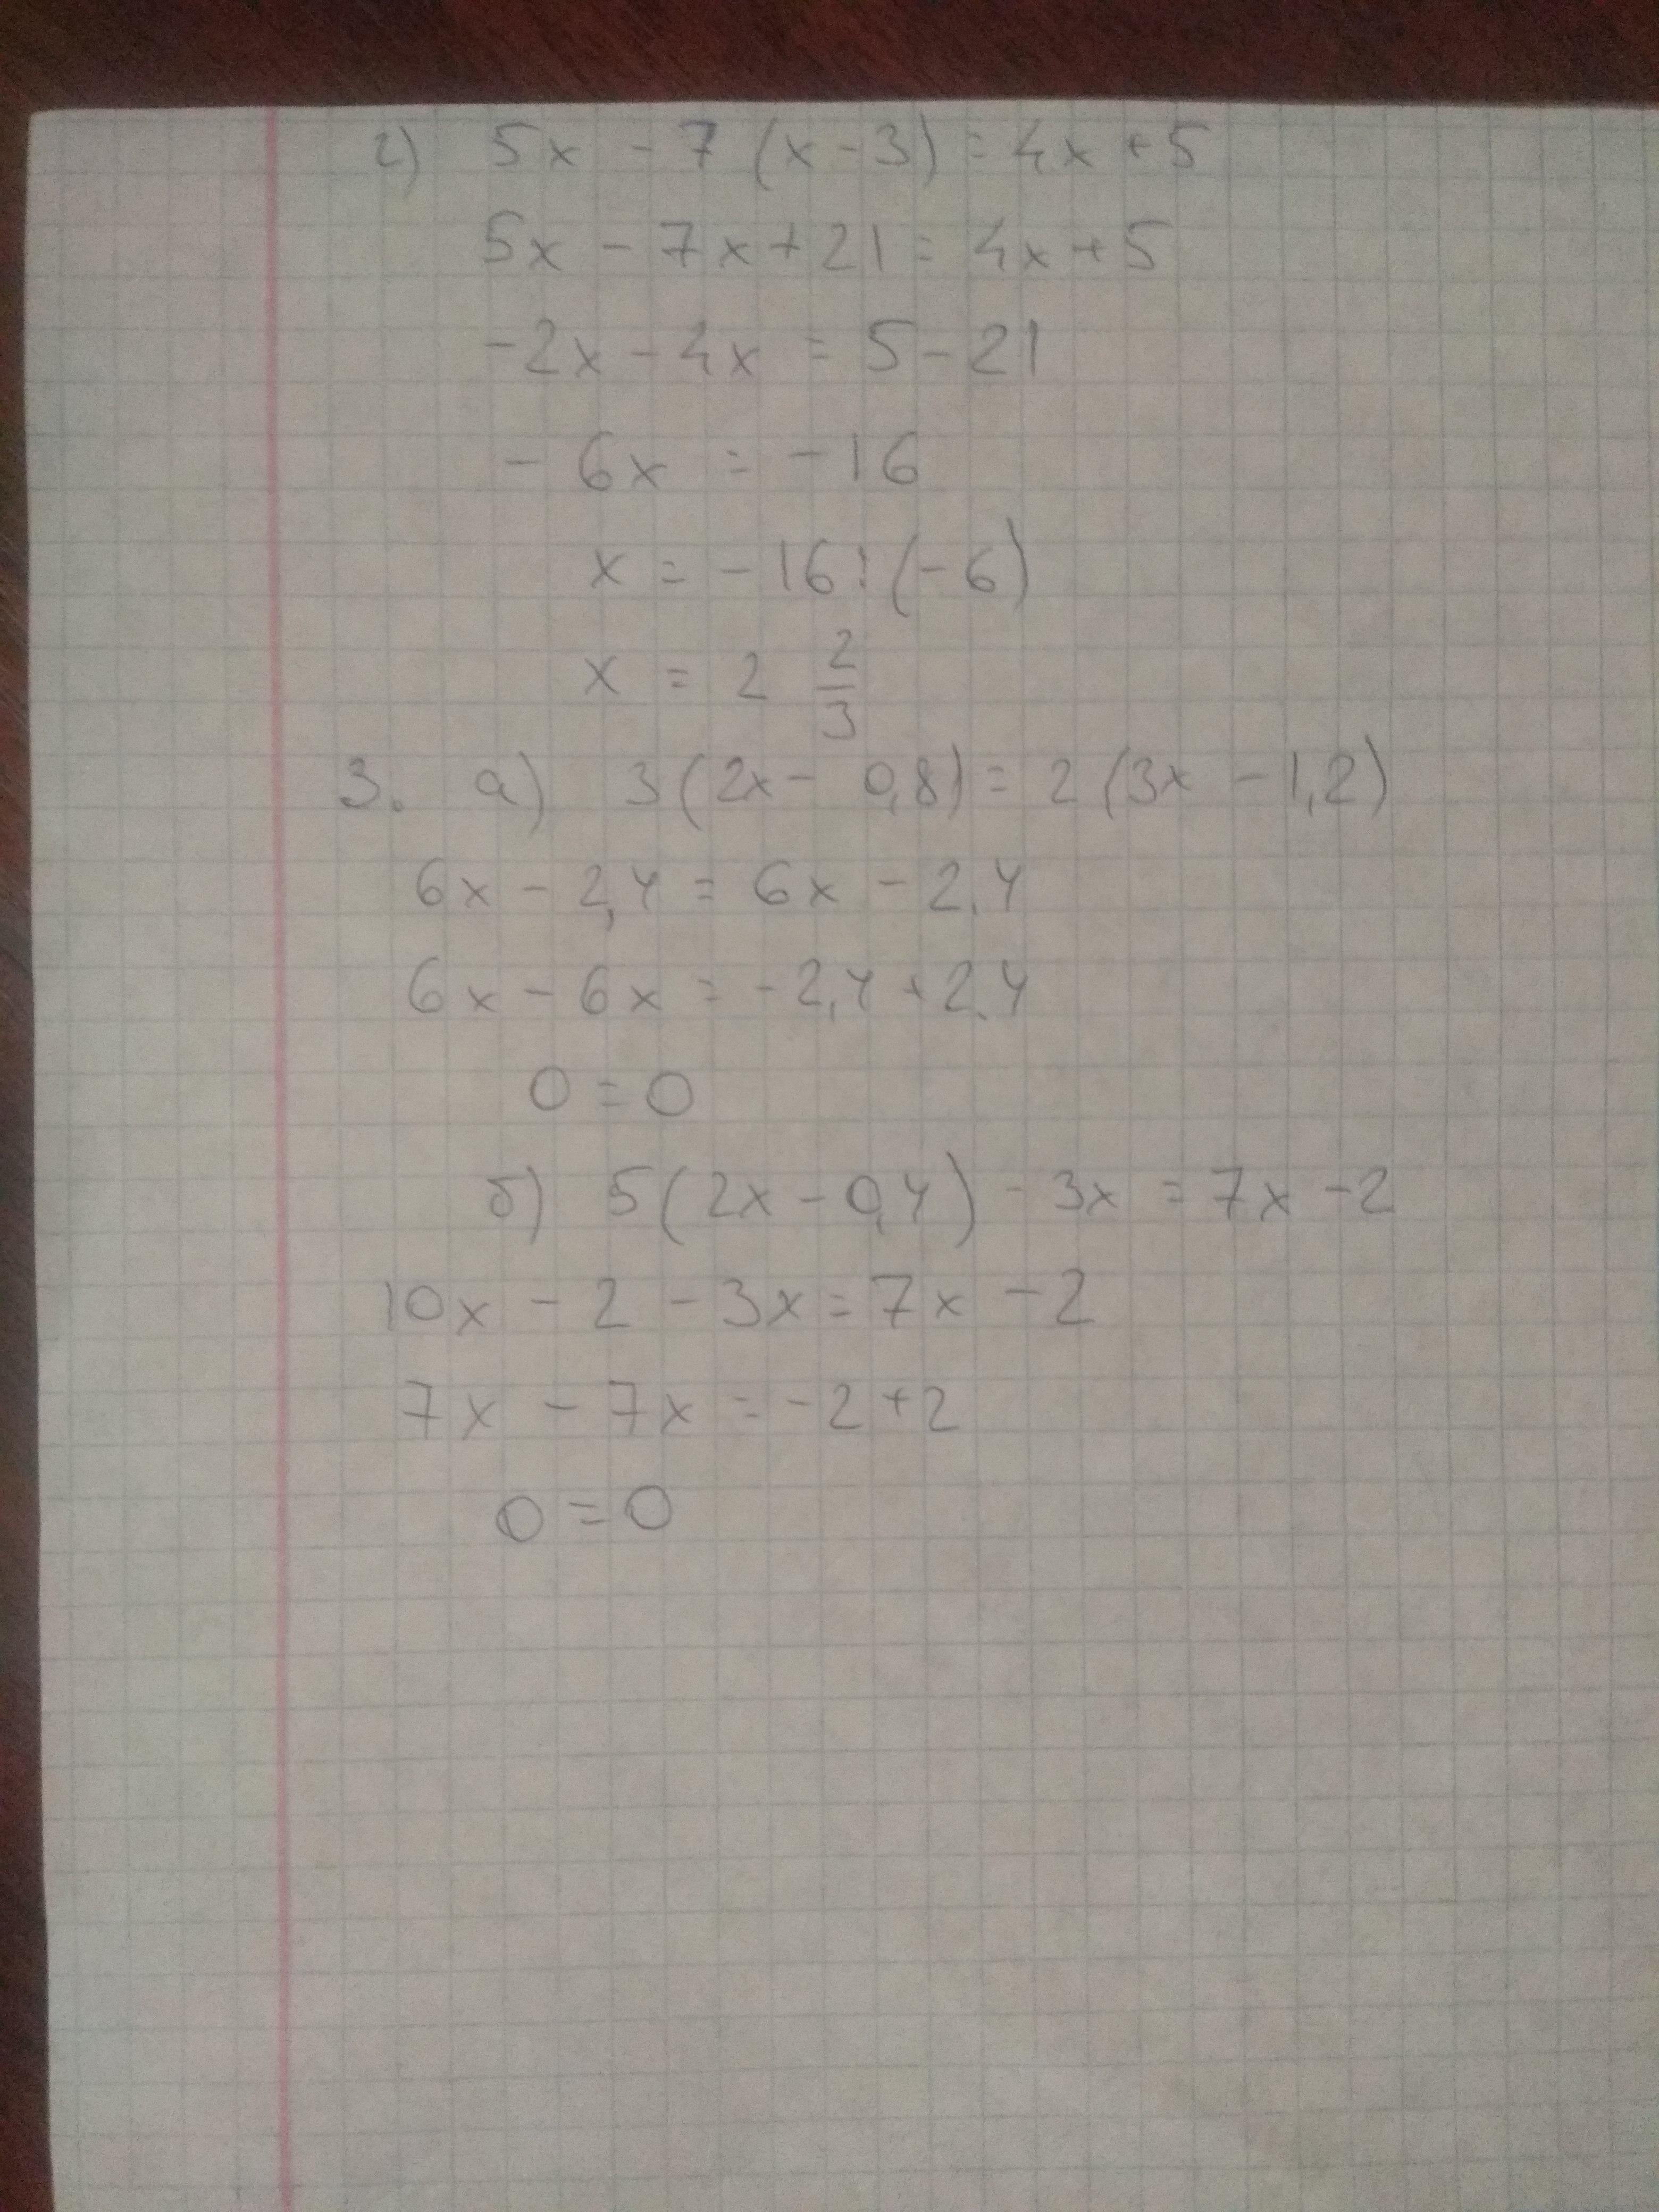 г) 5x - 7 (x - 3) = 4x + 5
5x - 7x + 21 = 4x + 5
-2x - 4x = 5 - 21
- 6x = -16
x = -16 : (-6)
x = 2 2/3
3. а) 3 (2x - 0,8) = 2 (3x - 1,2)
6x - 2,4 = 6x - 2,4
6x - 6x = -2,4 + 2,4
0 = 0
б) 5 (2x - 0,4) - 3x = 7x - 2
10x - 2 - 3x = 7x - 2
7x - 7x = -2 + 2
0 = 0